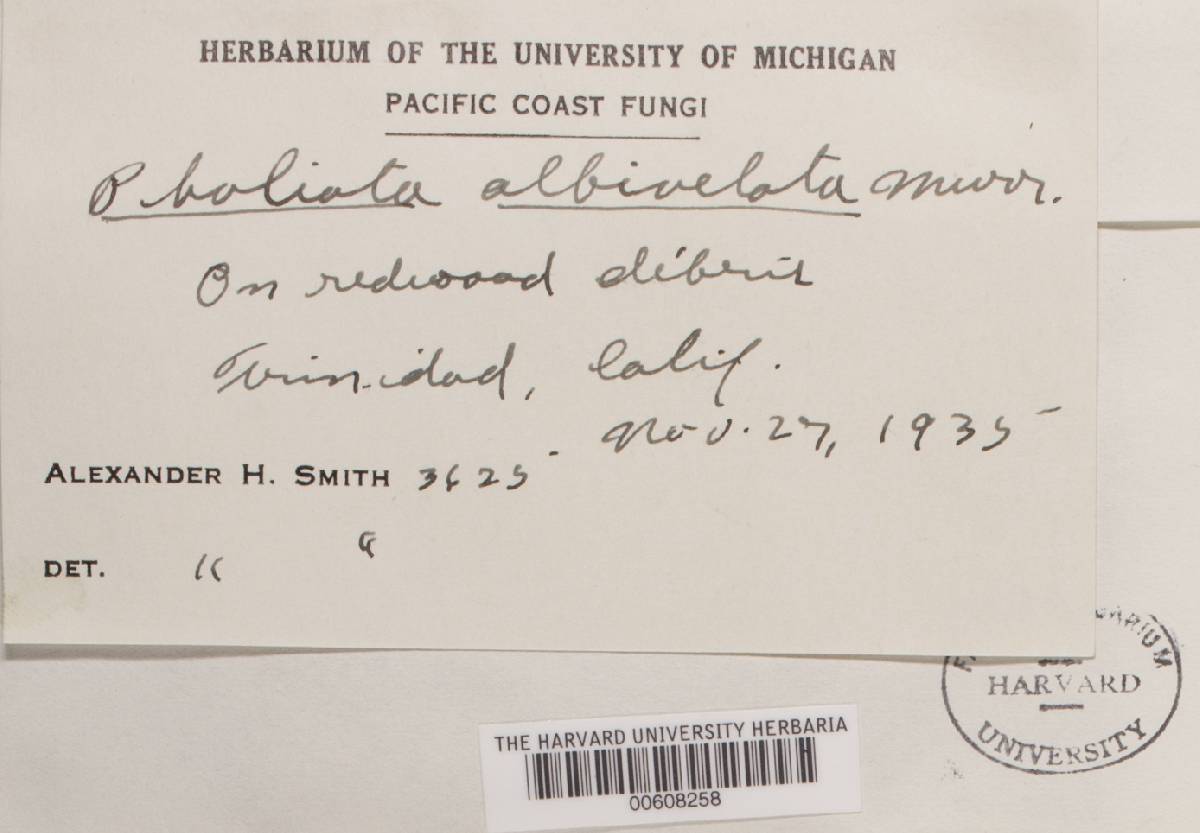 HERBARIUM OF THE UNIVERSITY OF MICHIGAN
PACIFIC COAST FUNGI
Pholiota albivelata Murr.
On redwood débris
Trinidad, Calif.
Nov. 27, 1935
ALEXANDER H. SMITH 3625
DET. "
HARVARD
UNIVERSITY
THE HARVARD UNIVERSITY HERBARIA
00608258